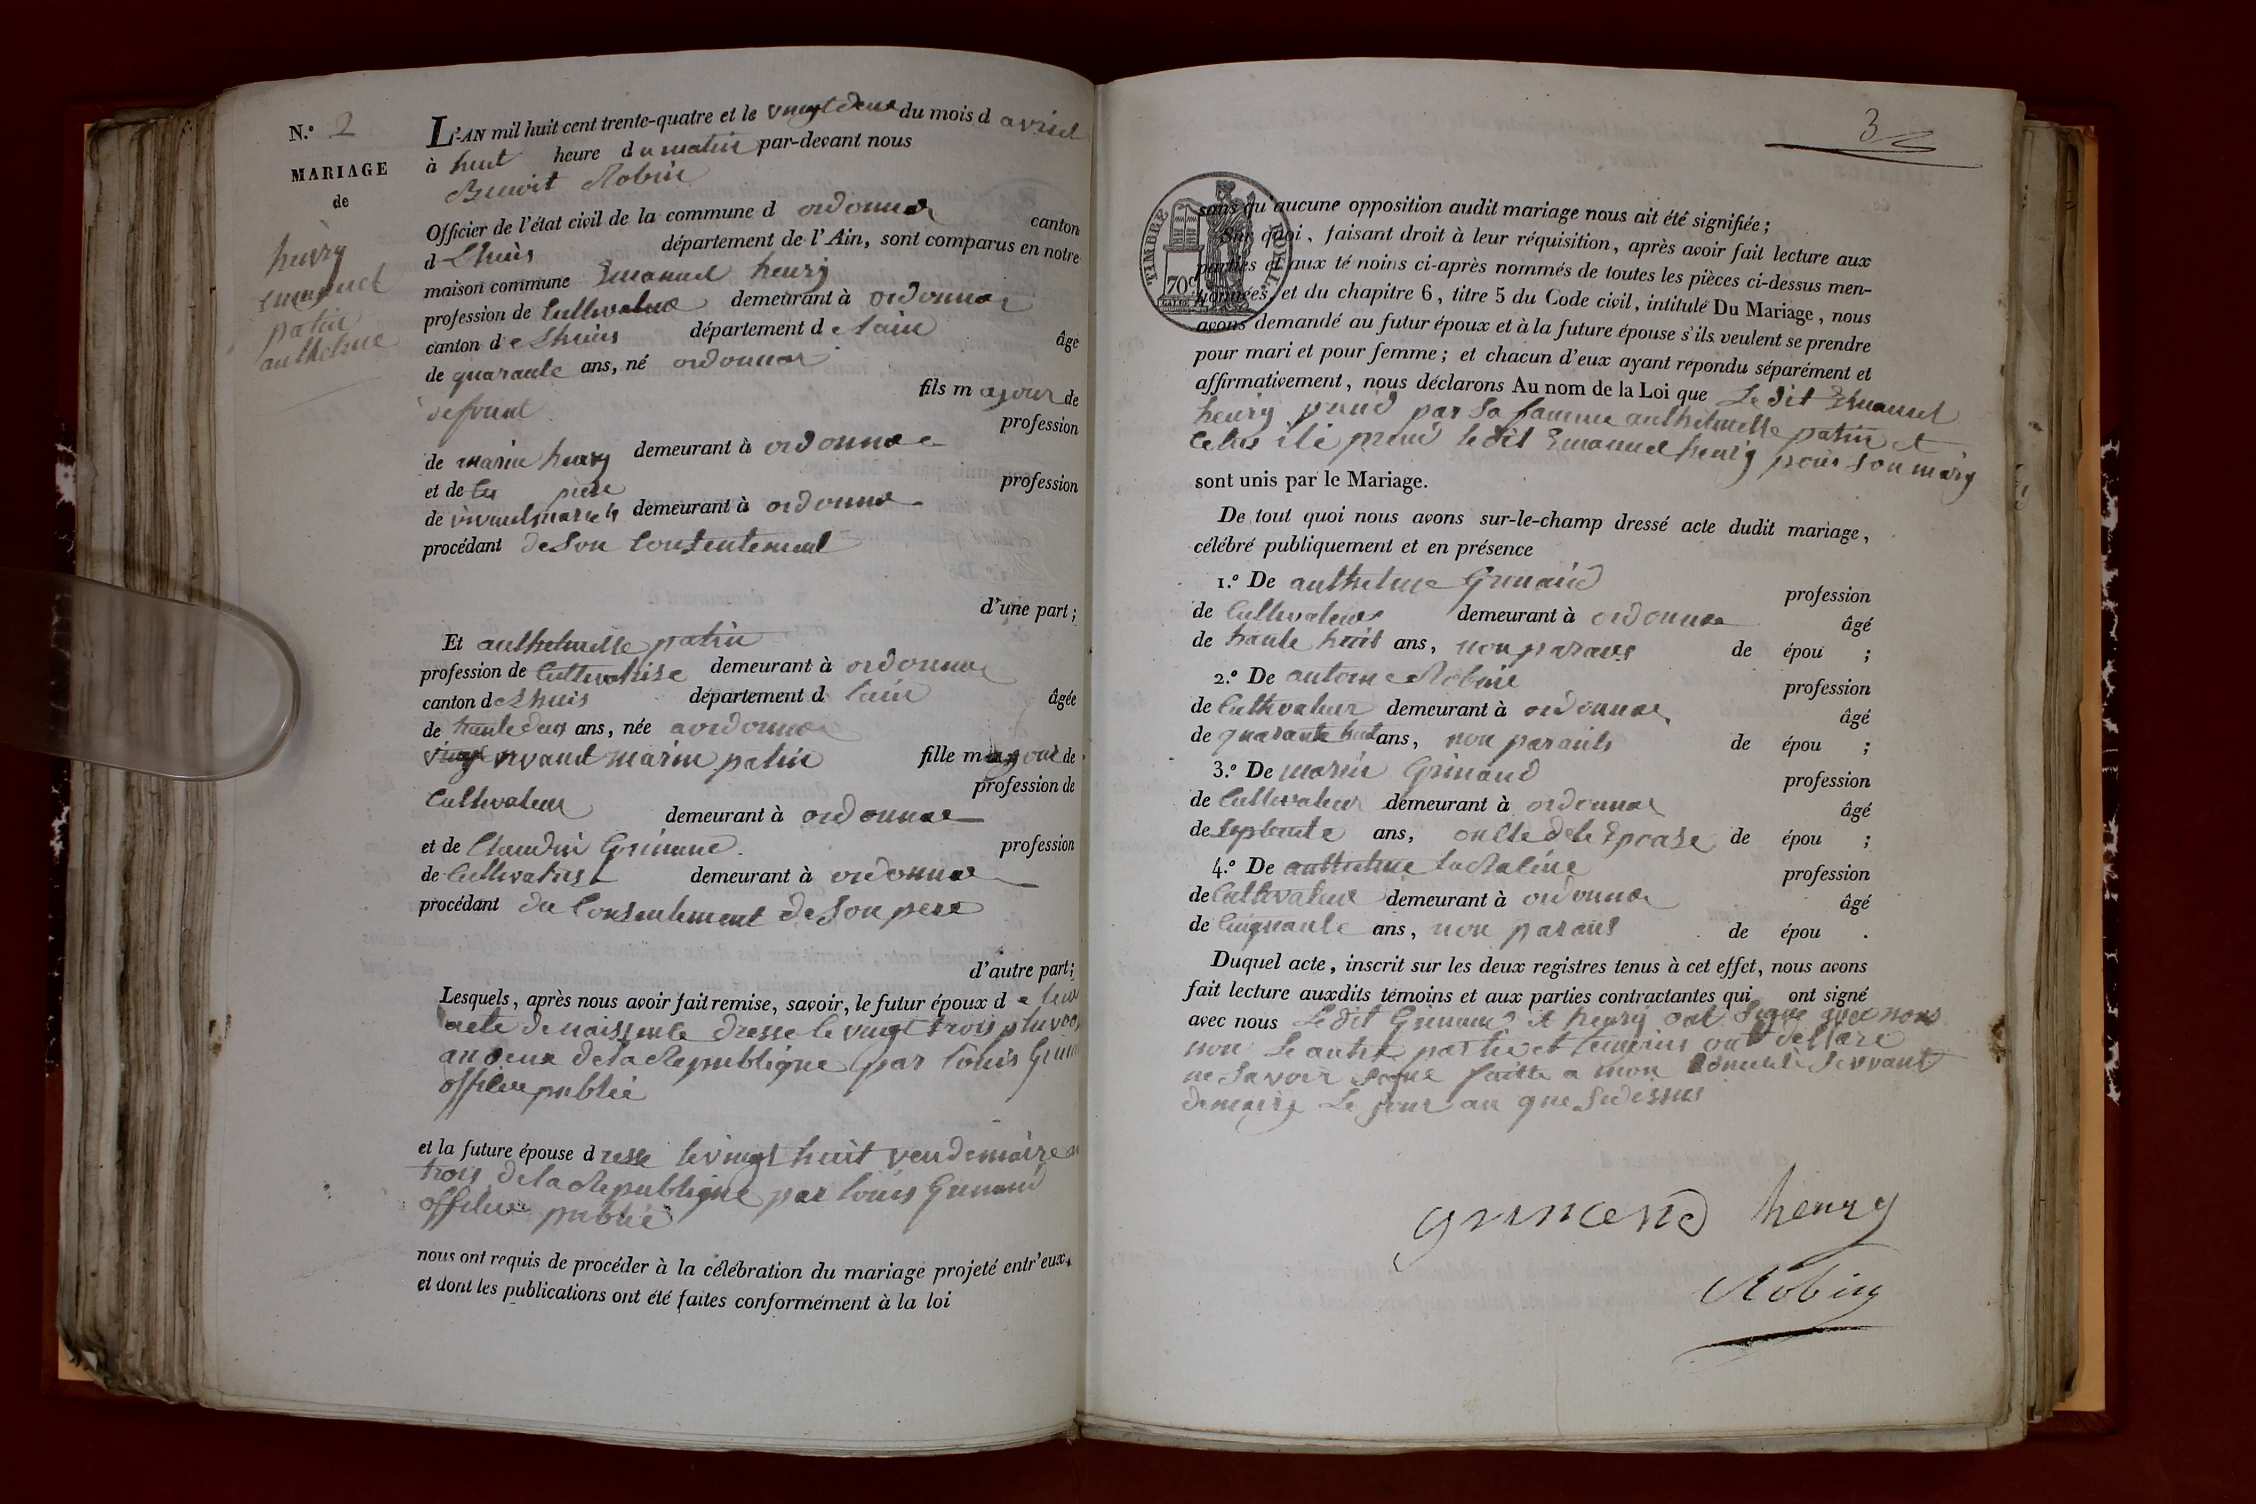 N.º 2
MARIAGE
de
henry
emanuel
patin
anthelme
L'AN mil huit cent trente-quatre et le vingt deux du mois d avril
à huit heure du matin par-devant nous
Benoit Robin
Officier de l'état civil de la commune d ordonnas canton
d Lhuis département de l'Ain, sont comparus en notre
maison commune Emanuel henry
profession de Cultivateur demeurant à ordonnas
canton de Lhuis département de lain âgé
de quarante ans, né ordonnas
fils majour de
defunt profession
de marin henry demeurant à ordonnas
et de profession
de demeurant à ordonnas
procédant de Son Consentement
d'une part;
Et anthelmette patin
profession de demeurant à ordonnas
canton de Lhuis département d lain âgée
de trante deus ans, née a ordonnas
vivant marin patin fille majour de
profession de
Cultivateur demeurant à ordonnas
et de Claudin Grimand profession
de demeurant à ordonnas
procédant du Consentement de Son pere
d'autre part;
Lesquels, après nous avoir fait remise, savoir, le futur époux d e
acte de naissence dresse le vingt trois
an deux de la Republique par Louis
officier public
et la future épouse d resse le vingt huit vendemaire an
trois de la Republique par Louis Grimand
officier public
nous ont requis de procéder à la célébration du mariage projeté entr'eux,
et dont les publications ont été faites conformément à la loi
3
TIMBRE ROYAL
70c
sans qu'aucune opposition audit mariage nous ait été signifiée;
Sur quoi, faisant droit à leur réquisition, après avoir fait lecture aux
parties et aux témoins ci-après nommés de toutes les pièces ci-dessus men-
tionnées, et du chapitre 6, titre 5 du Code civil, intitulé Du Mariage, nous
avons demandé au futur époux et à la future épouse s'ils veulent se prendre
pour mari et pour femme; et chacun d'eux ayant répondu séparément et
affirmativement, nous déclarons Au nom de la Loi que Le dit Emanuel
henry prend par Sa famme anthelmette patin et
prend ledit Emanuel henry pour Son mary
sont unis par le Mariage.
De tout quoi nous avons sur-le-champ dressé acte dudit mariage,
célébré publiquement et en présence
1.º De anthelme Grimand profession
de Cultivateur demeurant à ordonnas âgé
de trante huit ans, non parans de épou ;
2.º De antoine Robin profession
de Cultivateur demeurant à ordonnas âgé
de quarante huit ans, non parants de épou ;
3.º De marin Grimand profession
de Cultivateur demeurant à ordonnas âgé
de septante ans, oncle de le Epouse de épou ;
4.º De anthelme profession
de Cultivateur demeurant à ordonnas âgé
de Cinquante ans, non parans de épou .
Duquel acte, inscrit sur les deux registres tenus à cet effet, nous avons
fait lecture auxdits témoins et aux parties contractantes qui ont signé
avec nous Le dit Grimand et henry ont Signe avec nous
non Le autre partie et temoins ont dellare
ne Savoir Signe faitte a mon domicile Servant
de mairy Le jour an que Sidessus
grimand henry
Robin